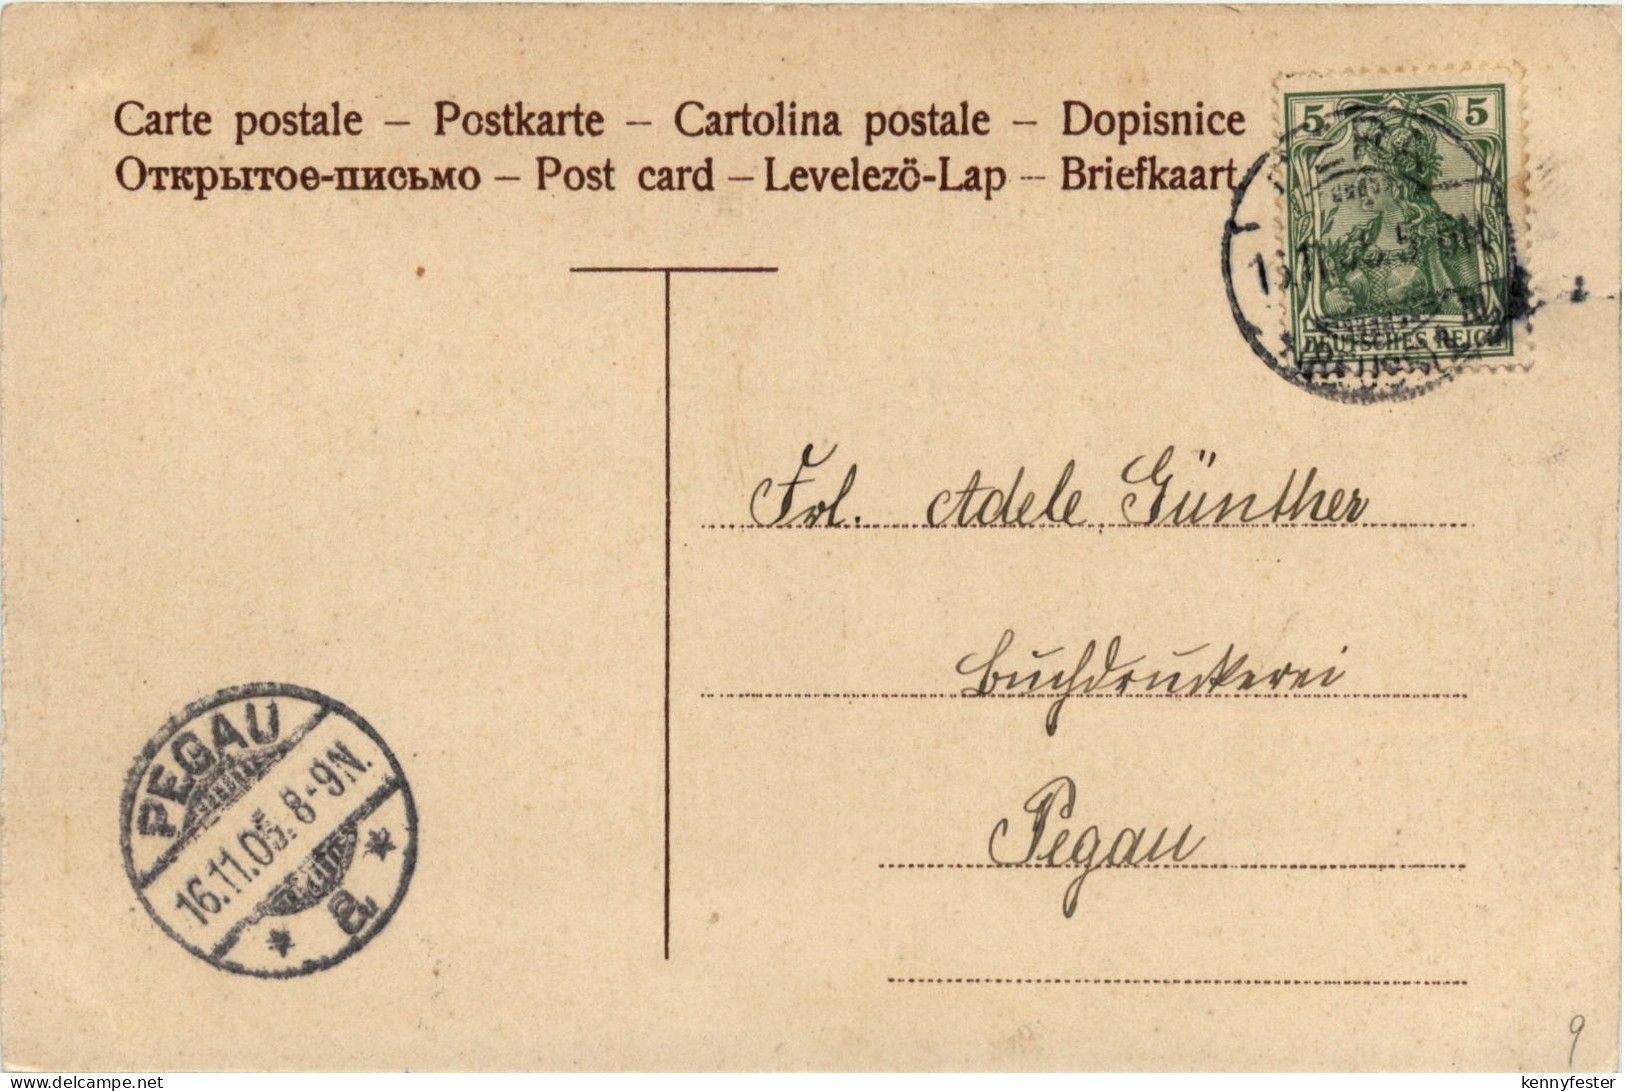 Carte postale – Postkarte – Cartolina postale – Dopisnice
Открытое-письмо – Post card – Levelező-Lap – Briefkaart
5 5
DEUTSCHES REICH
Frl. Adele Günther
Buchdruckerei
Pegau
PEGAU
16.11.05. 8-9N.
a.
9
kennyfester